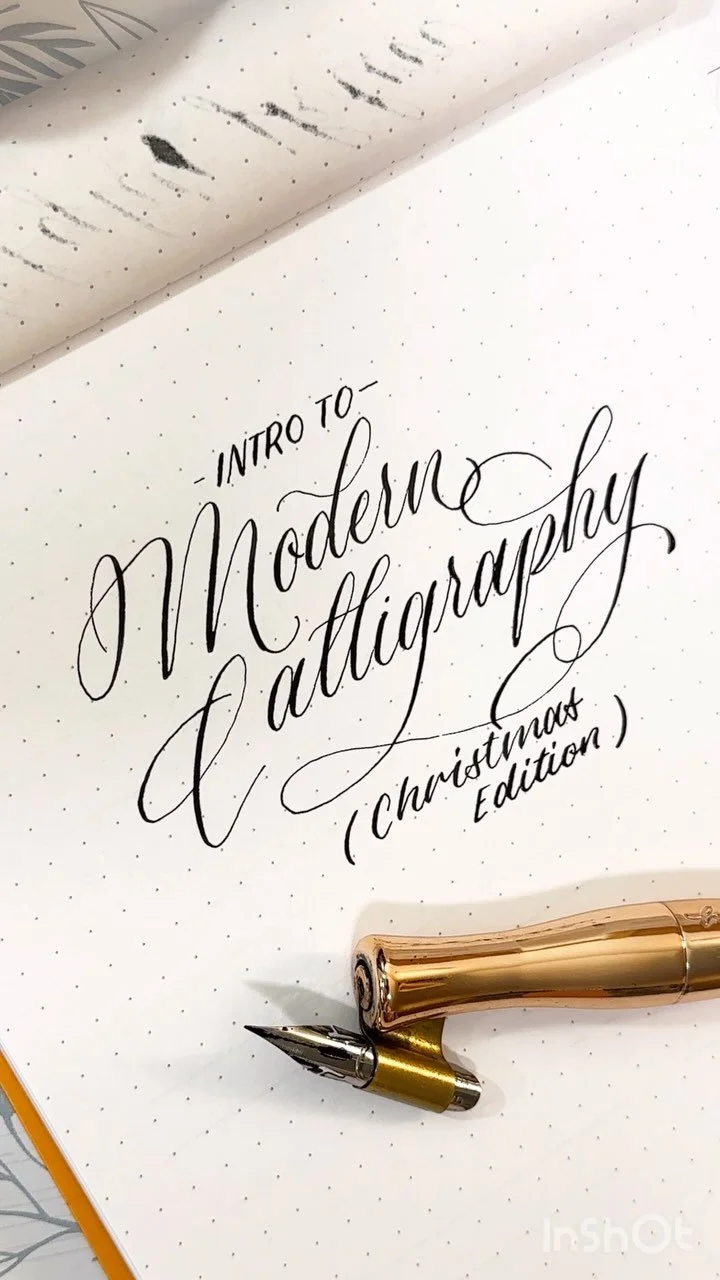 - INTRO TO -
Modern
Calligraphy
(Christmas
Edition)
InShOt